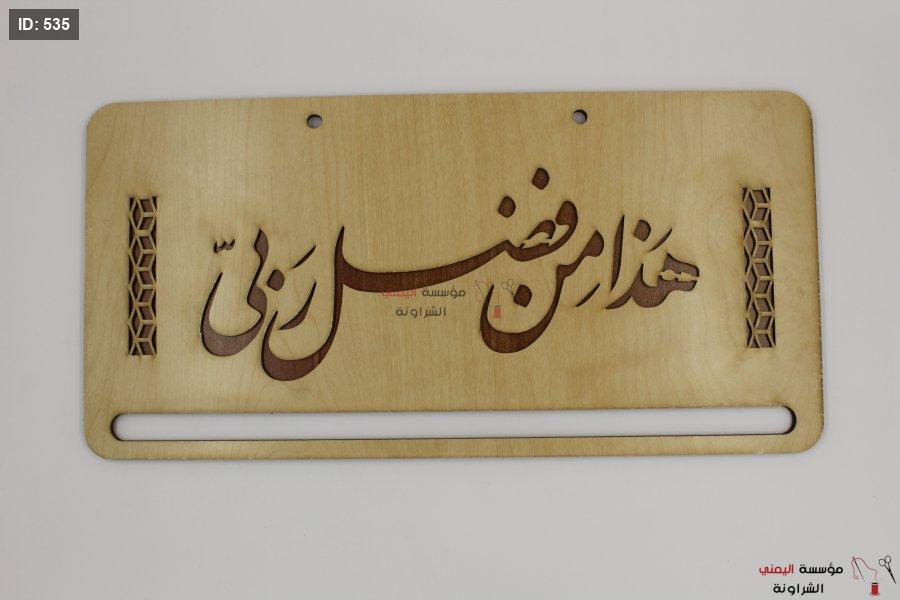 ID: 535
هَذَا مِن فَضْل رَبِّي
مؤسسة اليمني
الشراونة
مؤسسة اليمني
الشراونة